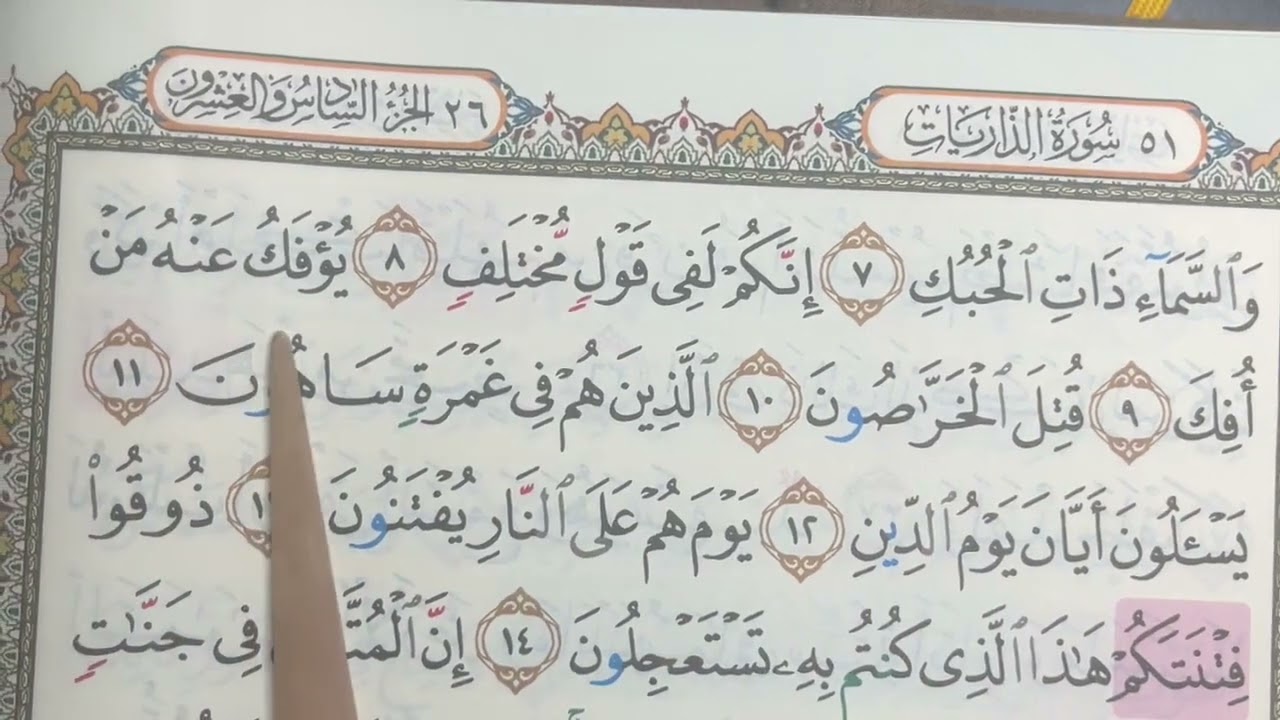 ٥١ سُورَةُ الذَّارِيَاتِ
٢٦ الجُزْءُ السَّادِسُ وَالعِشْرُونَ
وَٱلسَّمَآءِ ذَاتِ ٱلْحُبُكِ ٧ إِنَّكُمْ لَفِى قَوْلٍ مُّخْتَلِفٍ ٨ يُؤْفَكُ عَنْهُ مَنْ
أُفِكَ ٩ قُتِلَ ٱلْخَرَّٰصُونَ ١٠ ٱلَّذِينَ هُمْ فِى غَمْرَةٍ سَاهُونَ ١١
يَسْـَٔلُونَ أَيَّانَ يَوْمُ ٱلدِّينِ ١٢ يَوْمَ هُمْ عَلَى ٱلنَّارِ يُفْتَنُونَ ذُوقُوا۟
فِتْنَتَكُمْ هَٰذَا ٱلَّذِى كُنتُم بِهِۦ تَسْتَعْجِلُونَ ١٤ إِنَّ فِى جَنَّٰتٍ